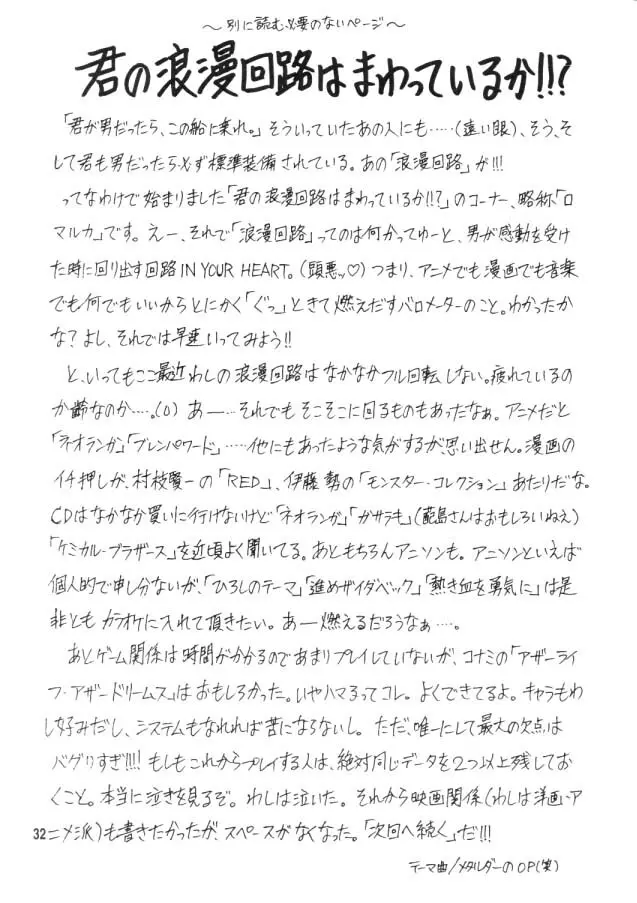 ～別に読む必要のないページ～
君の浪漫回路はまわっているか!!?
「君が男だったら、この船に乗れ。」そういっていたあの人にも……(遠い眼)、そう、そ
して君も男だったら必ず標準装備されている。あの「浪漫回路」が!!!
ってなわけで始まりました「君の浪漫回路はまわっているか!!?」のコーナー、略称「ロ
マルカ」です。えー、それで「浪漫回路」ってのは何かってゆーと、男が感動を受け
た時に回り出す回路IN YOUR HEART。(頭悪ッ♡)つまり、アニメでも漫画でも音楽
でも何でもいいからとにかく「ぐっ」ときて燃えだすバロメーターのこと。わかったか
な?よし、それでは早速いってみよう!!
と、いってもここ最近わしの浪漫回路はなかなかフル回転しない。疲れているの
か齢なのか……。(0) あー……それでもそこそこに回るものもあったなぁ。アニメだと
「ネオランガ」「ブレンパワード」……他にもあったような気がするが、思い出せん。漫画の
イチ押しが、村枝賢一の「RED」、伊藤勢の「モンスター・コレクション」あたりだな。
CDはなかなか買いに行けないけど「ネオランガ」「ガサラキ」(蓜島さんはおもしろいねえ)
「ケミカル・ブラザース」を近頃よく聞いてる。あともちろんアニソンも。アニソンといえば
個人的で申し分ないが、「ひろしのテーマ」「進めザイダベック」「熱き血を勇気に」は是
非とも カラオケに入れて頂きたい。あー燃えるだろうなぁ……。
あとゲーム関係は時間がかかるのであまりプレイしていないが、コナミの「アザーライ
フ・アザードリームス」はおもしろかった。いやハマるってコレ。よくできてるよ。キャラもわ
し好みだし、システムもなれれば苦にならないし。ただ、唯一にして最大の欠点は
バグりすぎ!!!! もしもこれからプレイする人は、絶対同じデータを2つ以上残してお
くこと。本当に泣きを見るぞ。わしは泣いた。それから映画関係(わしは洋画・ア
ニメ派)も書きたかったが、スペースがなくなった。「次回へ続く」だ!!!
32
テーマ曲/メタルダーのOP(笑)